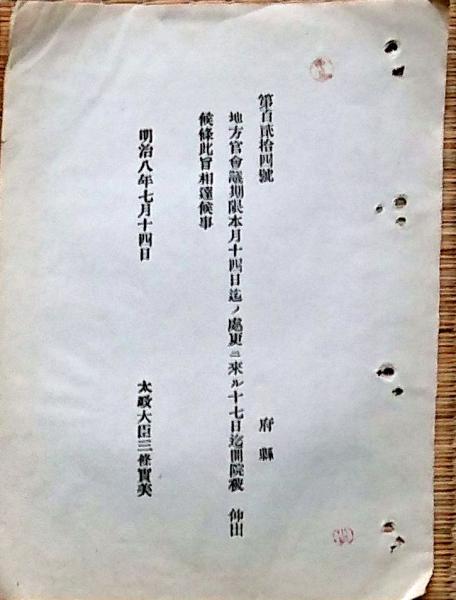 第百貳拾四號
府縣
地方官會議期限本月十四日迄ノ處更ニ來ル十七日迄開院被 仰出
候條此旨相達候事
明治八年七月十四日
太政大臣三條實美